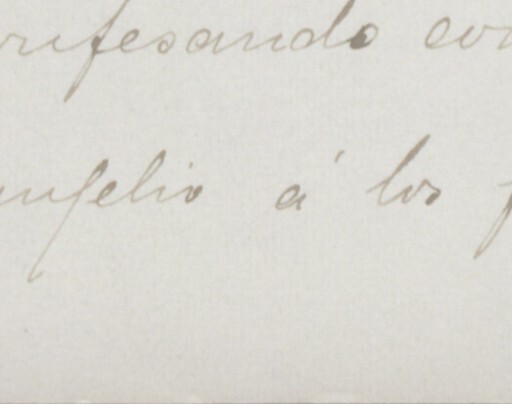 nfesando con
angelio á los